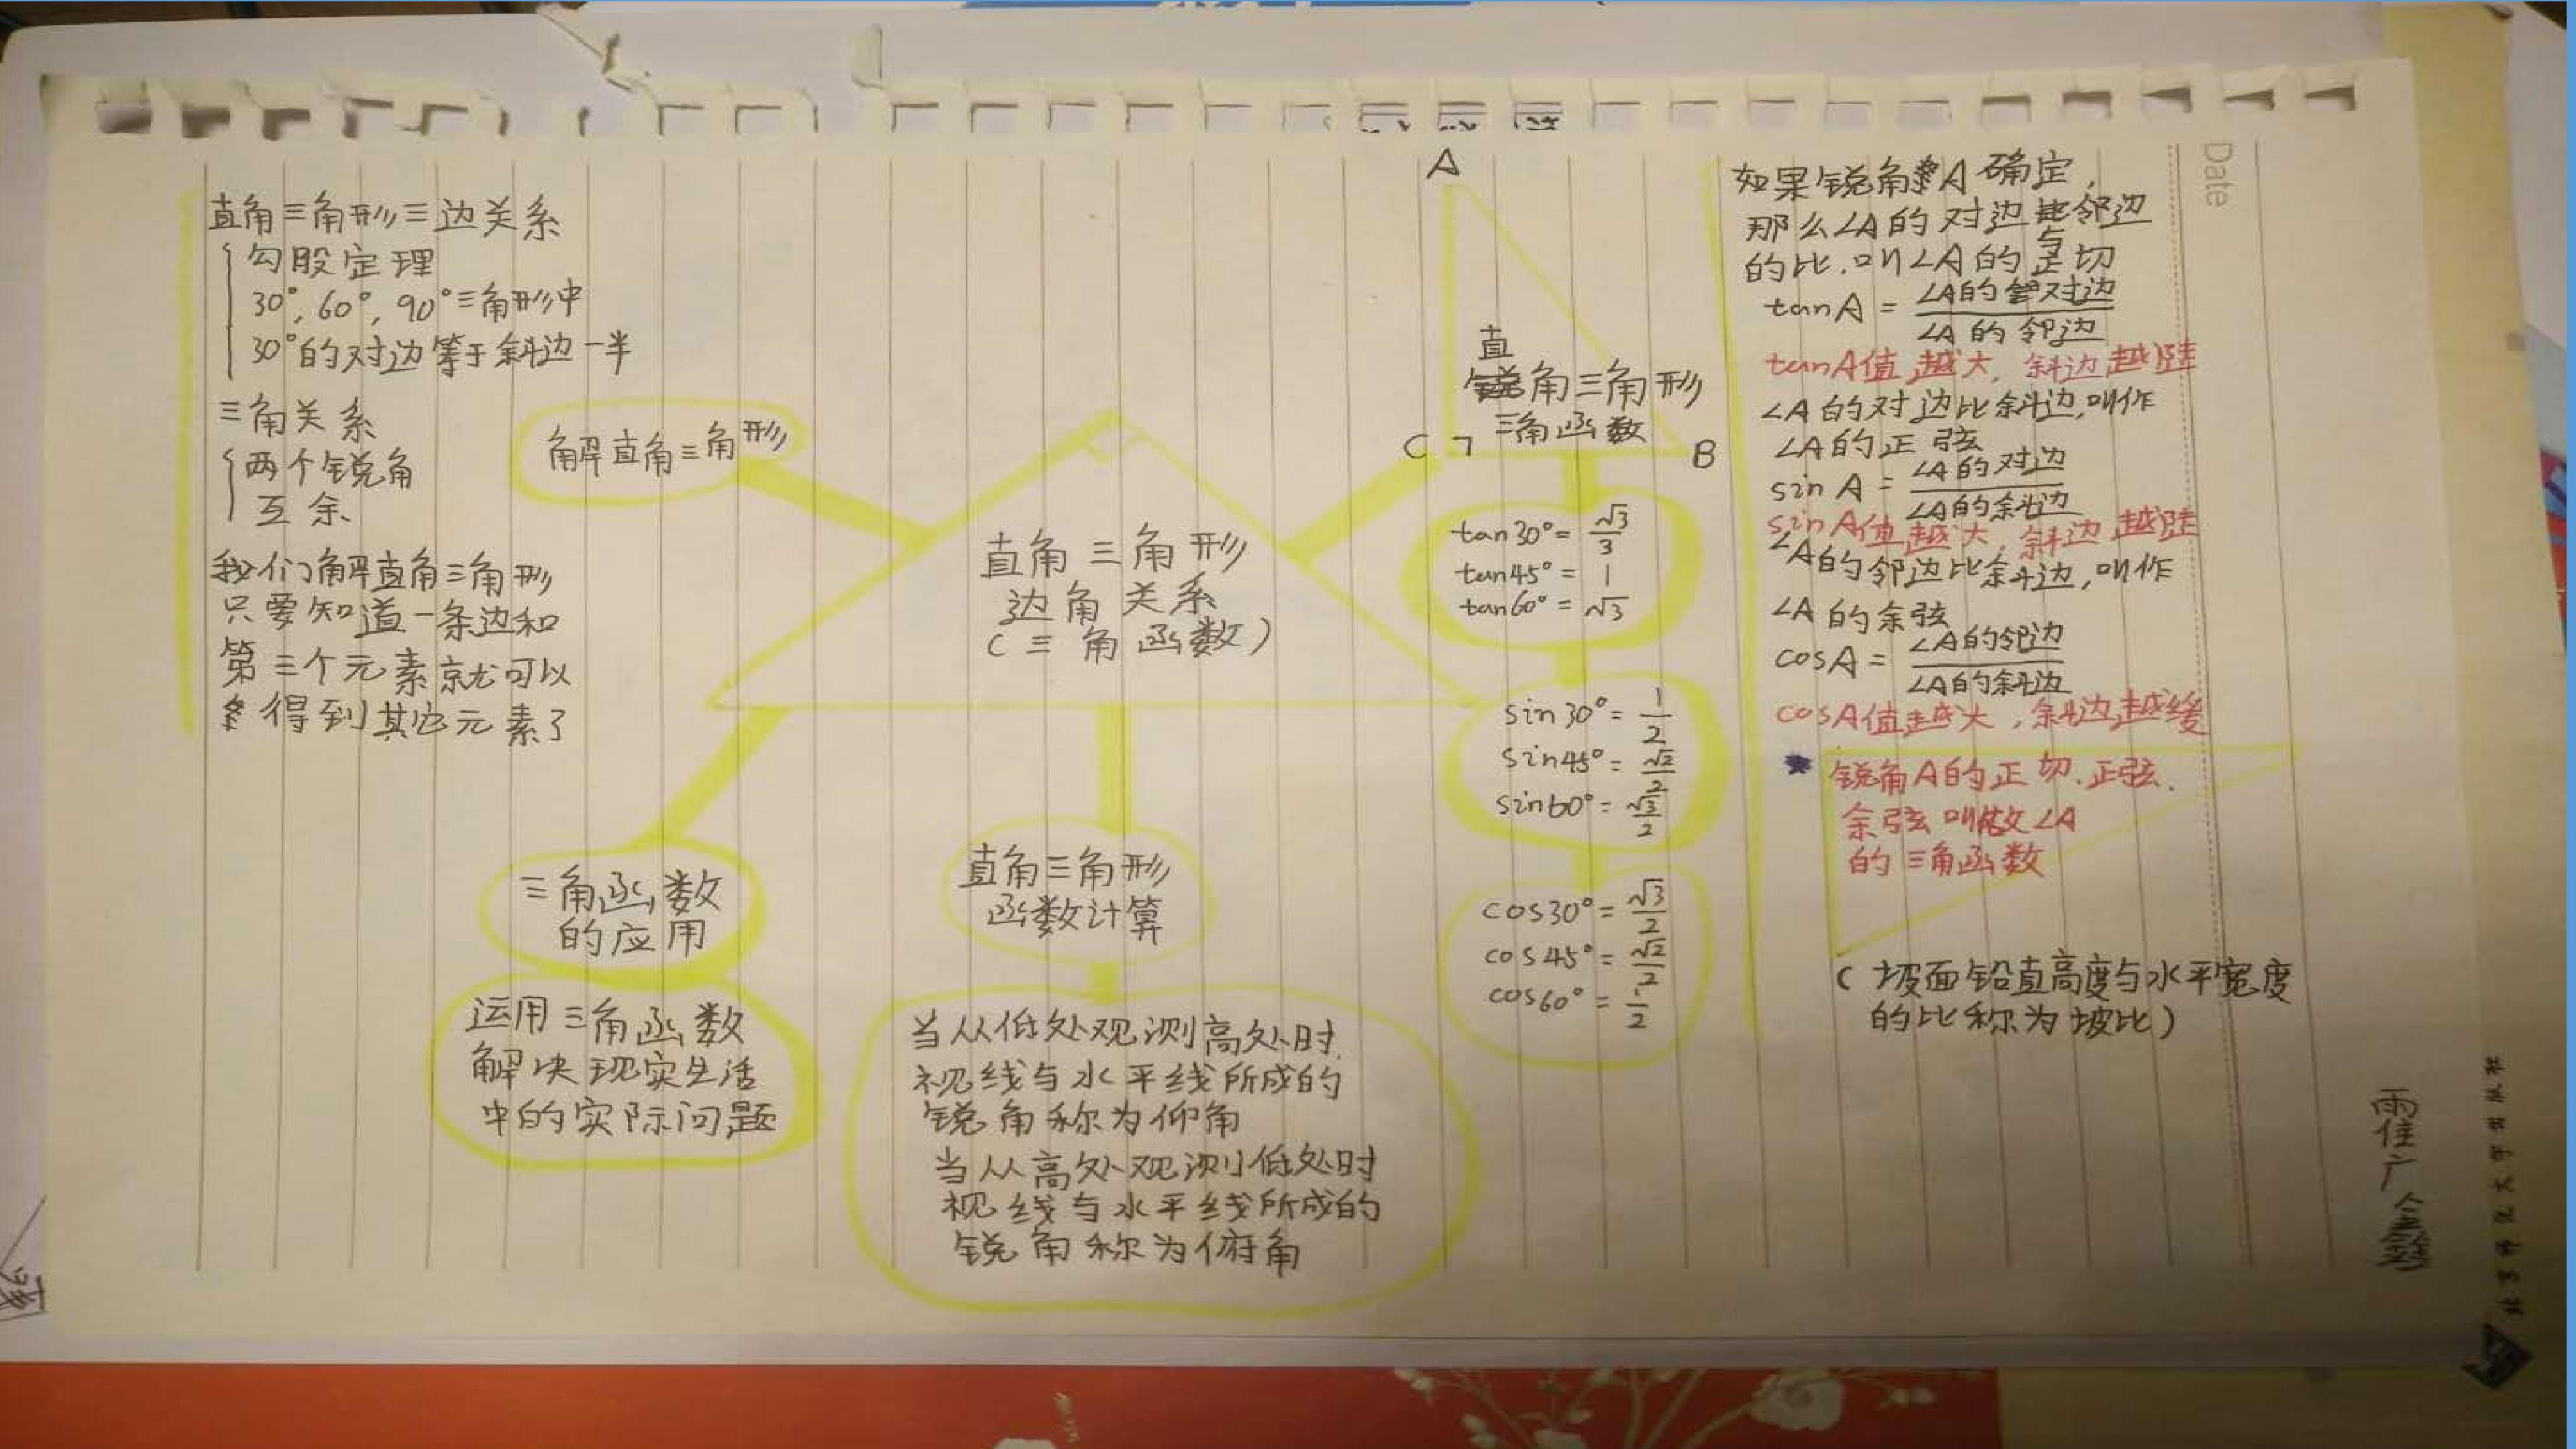 直角三角形三边关系
勾股定理
30°, 60°, 90°三角形中
30°的对边等于斜边一半
三角关系
两个锐角
互余
我们解直角三角形
只要知道一条边和
第三个元素就可以
得到其它元素了
解直角三角形
直角三角形
边角关系
(三角函数)
三角函数
的应用
运用三角函数
解决现实生活
中的实际问题
直角三角形
函数计算
当从低处观测高处时,
视线与水平线所成的
锐角称为仰角
当从高处观测低处时
视线与水平线所成的
锐角称为俯角
A
直
锐角三角形
三角函数
C
B
tan30°= √3/3
tan45°= 1
tan60°= √3
sin30°= 1/2
sin45°= √2/2
sin60°= √3/2
cos30°= √3/2
cos45°= √2/2
cos60°= 1/2
Date
如果锐角A确定,
那么∠A的对边与邻边
的比.叫∠A的正切
tanA = ∠A的对边/∠A的邻边
tanA值越大,斜边越陡
∠A的对边比斜边,叫作
∠A的正弦
sinA = ∠A的对边/∠A的斜边
sinA值越大,斜边越陡
∠A的邻边比斜边,叫作
∠A的余弦
cosA = ∠A的邻边/∠A的斜边
cosA值越大,斜边越缓
锐角A的正切.正弦.
余弦叫做∠A
的三角函数
(坡面铅直高度与水平宽度
的比称为坡比)
霍广鑫
北京师范大学出版社